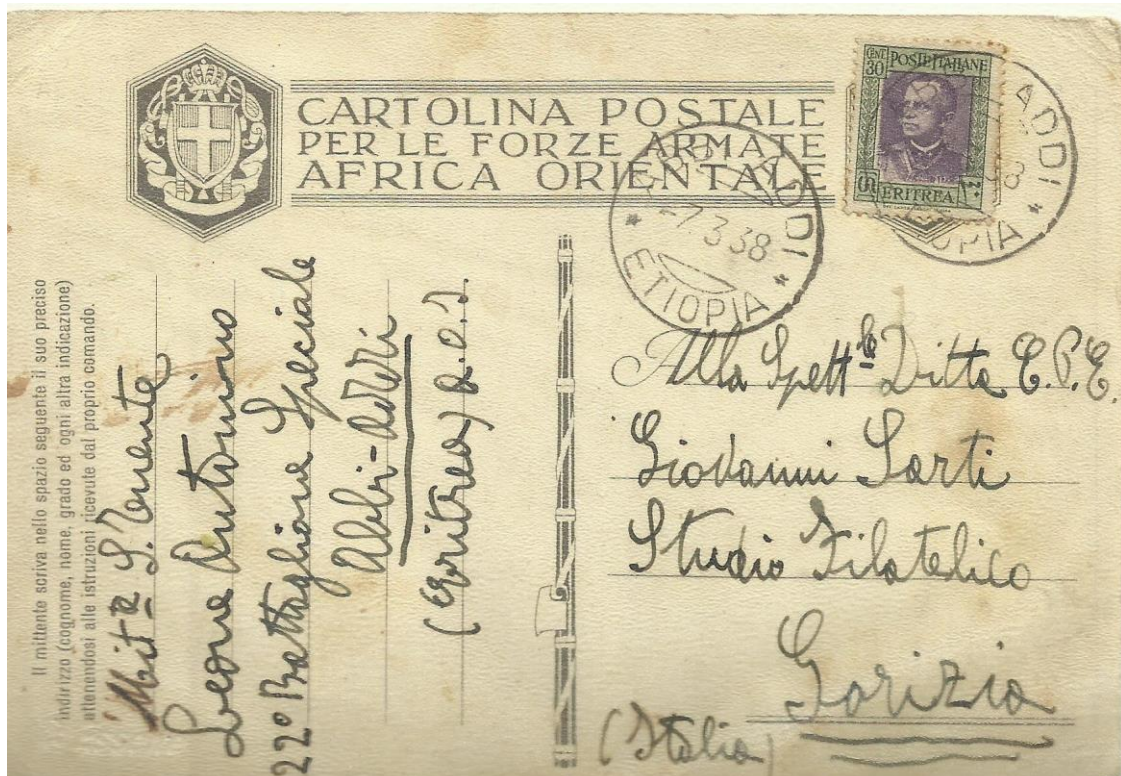 CARTOLINA POSTALE
PER LE FORZE ARMATE
AFRICA ORIENTALE
CENT 30 POSTE ITALIANE
ERITREA
ADDI
ETIOPIA
ABBI ADDI
-7.3.38
ETIOPIA
Il mittente scriva nello spazio seguente il suo preciso
indirizzo (cognome, nome, grado ed ogni altra indicazione)
attenendosi alle istruzioni ricevute dal proprio comando.
Mitte S. Tenente
Leone Antonino
22º Battaglione Speciale
Abbi-Addi
(Eritrea) A.O.I.
Alla Spettle Ditta C.P.E.
Giovanni Sarti
Studio Filatelico
Gorizia
(Italia)